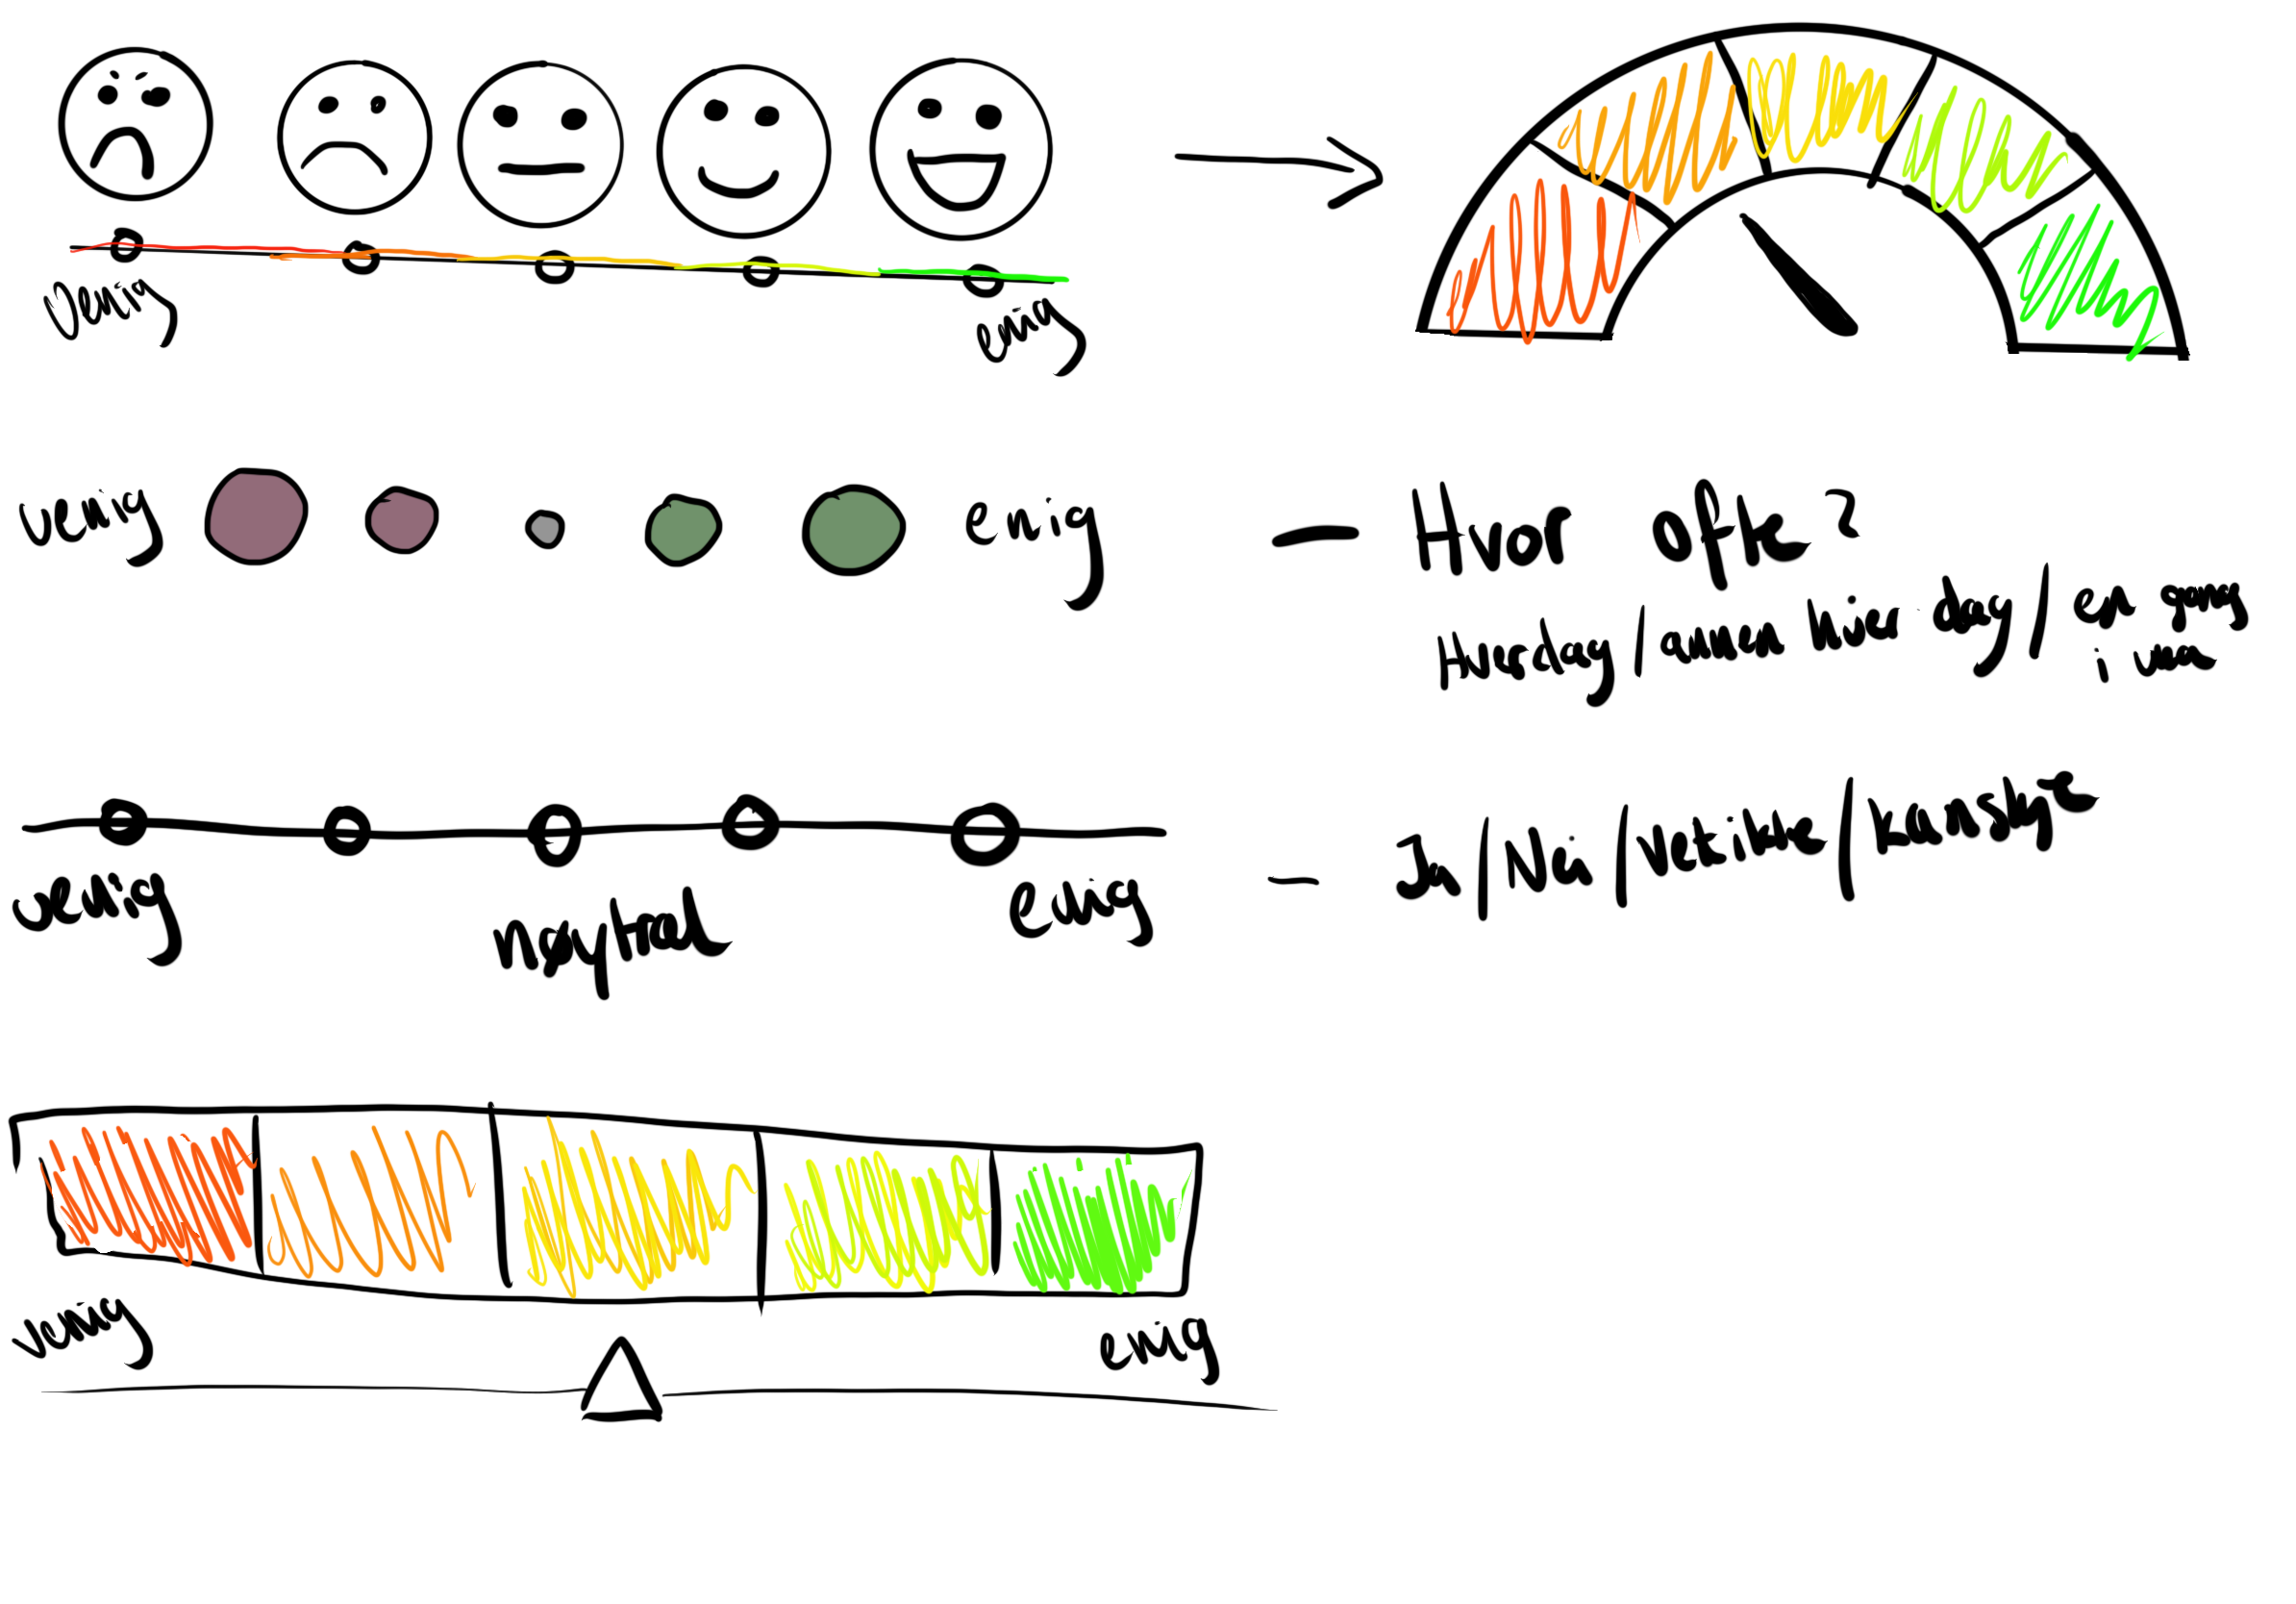 Uenig
enig
uenig
enig
— Hvor ofte?
Hverdag/annen hver dag/en gang
i uka
uenig
nøytral
enig
— Ja/Nei/Vet ikke/kanskje
uenig
enig